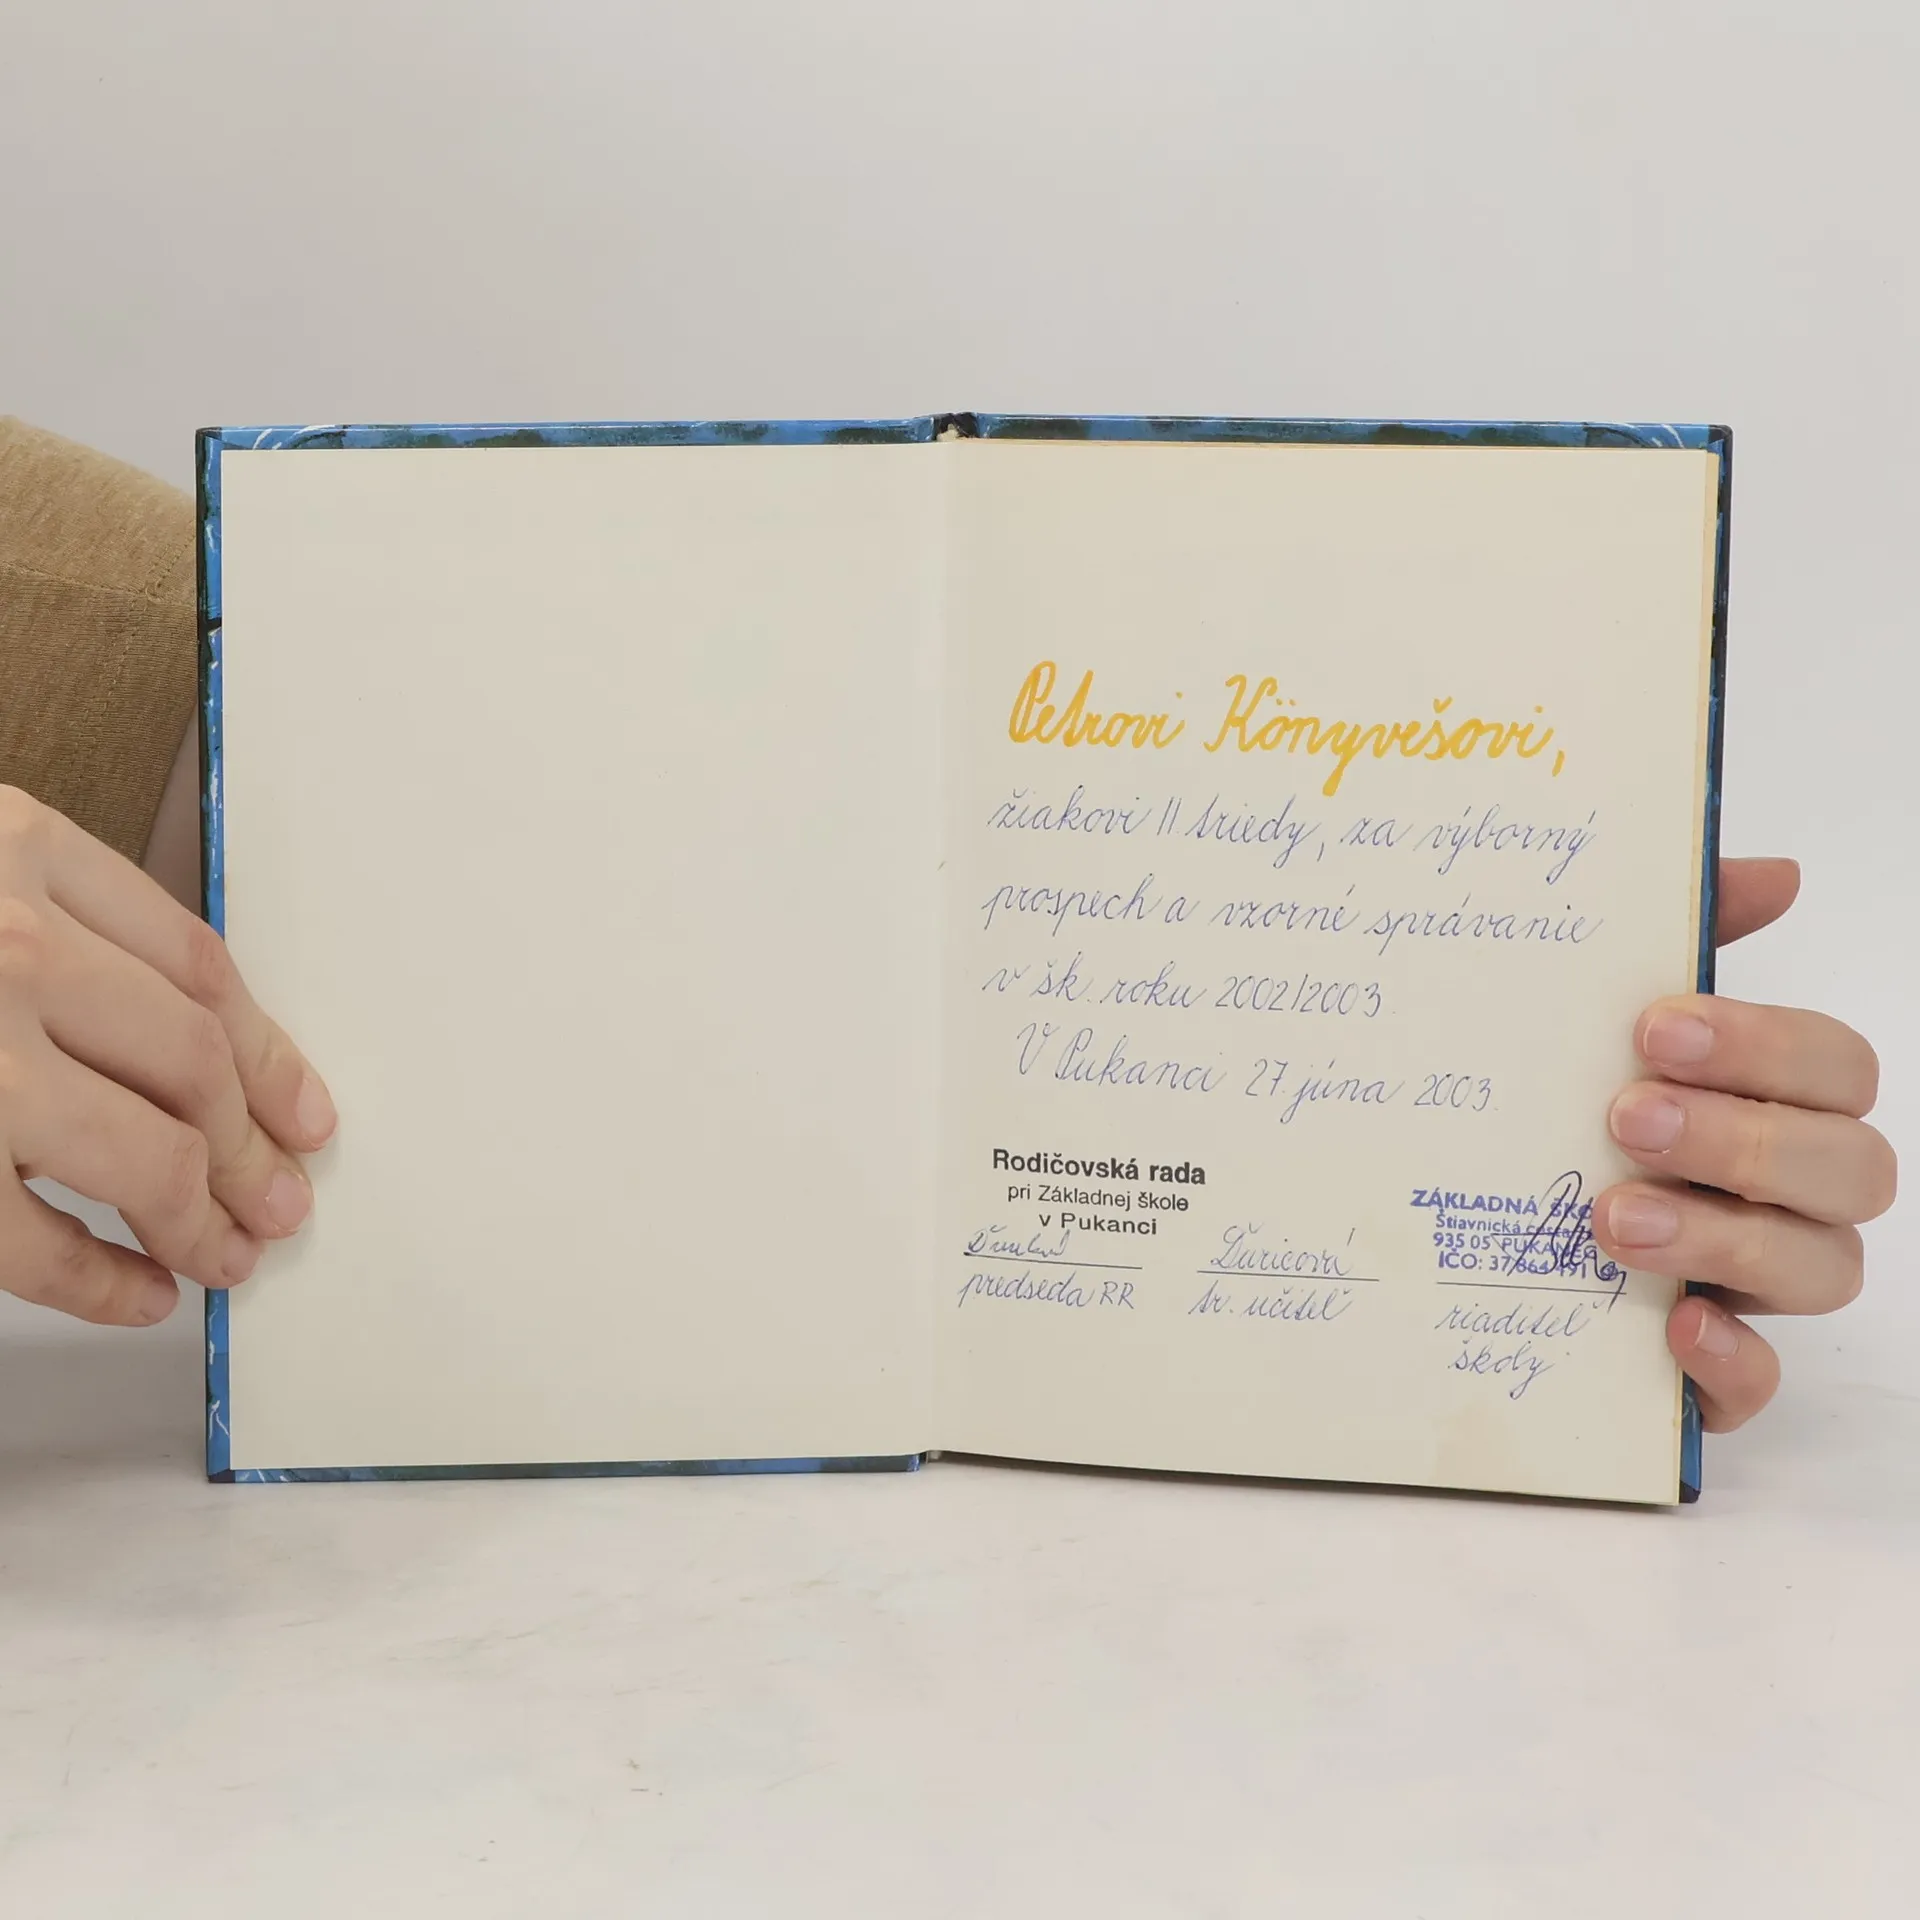 Petrovi Könyvešovi,
žiakovi II triedy, za výborný
prospech a vzorné správanie
v šk. roku 2002/2003.
V Pukanci 27. júna 2003.
Rodičovská rada
pri Základnej škole
v Pukanci
predseda RR
Ďuricová
tr. učiteľ
ZÁKLADNÁ
Štiavnická cesta
935 05 PUKANEC
IČO: 37 864 491
riaditeľ
školy